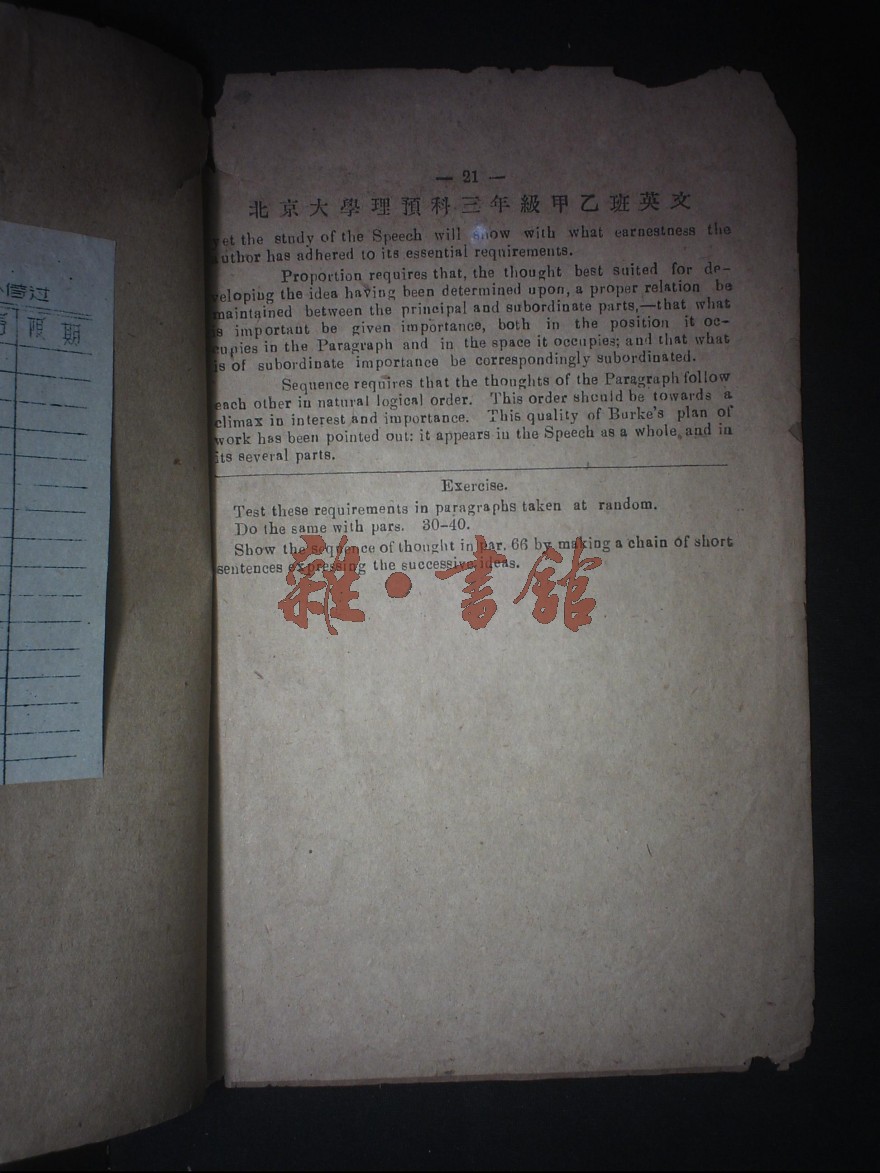 — 21 —
北京大學理預科三年級甲乙班英文
yet the study of the Speech will show with what earnestness the
author has adhered to its essential requirements.
Proportion requires that, the thought best suited for de-
veloping the idea having been determined upon, a proper relation be
maintained between the principal and subordinate parts,—that what
is important be given importance, both in the position it oc-
cupies in the Paragraph and in the space it occupies; and that what
is of subordinate importance be correspondingly subordinated.
Sequence requires that the thoughts of the Paragraph follow
each other in natural logical order. This order should be towards a
climax in interest and importance. This quality of Burke's plan of
work has been pointed out: it appears in the Speech as a whole, and in
its several parts.
Exercise.
Test these requirements in paragraphs taken at random.
Do the same with pars. 30-40.
Show the sequence of thought in par. 66 by making a chain of short
sentences expressing the successive ideas.
雜·書館
借过
限期